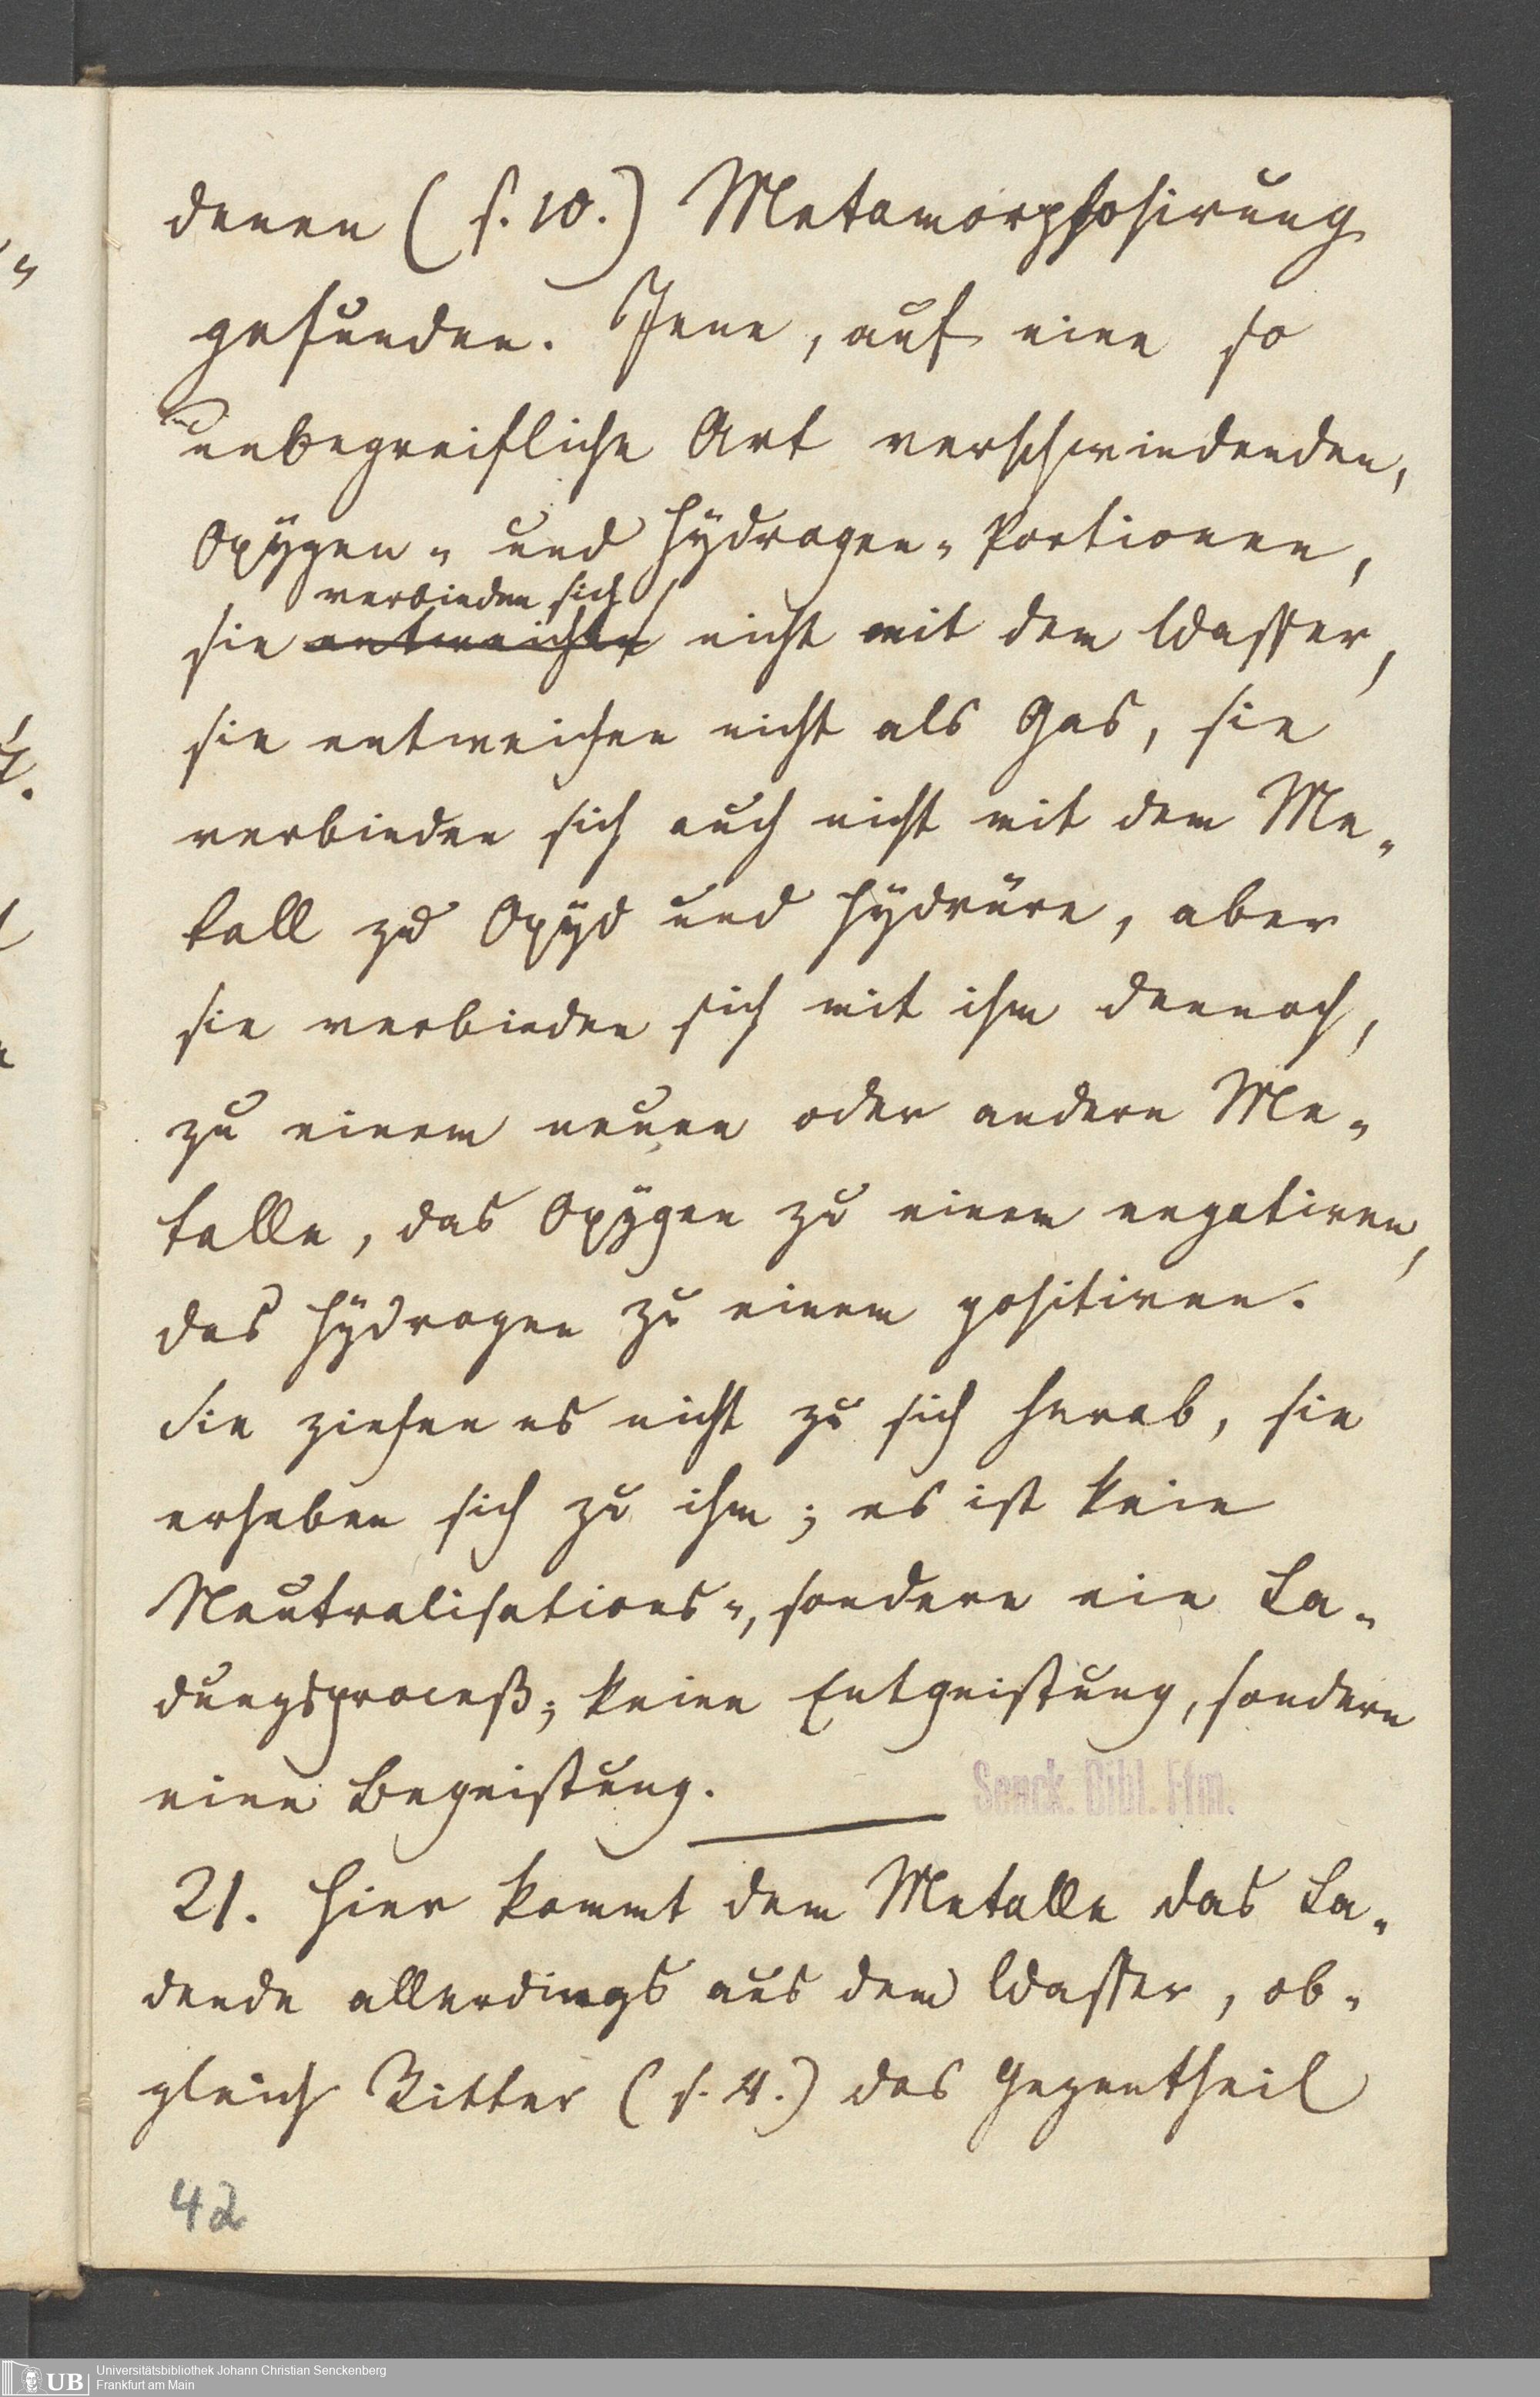 denen (s. 10.) Metamorphosirung
gefunden. Jene, auf eine so
unbegreifliche Art verschwindenden,
Oxÿgen- und Hÿdrogen-Portionen,
verbinden sich
sie entweichen nicht mit dem Wasser,
sie entweichen nicht als Gas, sie
verbinden sich auch nicht mit dem Me-
tall zu Oxÿd und Hÿdrüre, aber
sie verbinden sich mit ihm dennoch,
zu einem neuen oder andern Me-
talle, das Oxÿgen zu einem negativen,
das Hÿdrogen zu einem positiven.
Sie ziehen es nicht zu sich herab, sie
erheben sich zu ihm; es ist kein
Neutralisations-, sondern ein La-
dungsproceß; keine Entgeistung, sondern
eine Begeistung.
Senck. Bibl. Ffm.
21. Hier kommt dem Metalle das La-
dende allerdings aus dem Wasser, ob-
gleich Ritter (s. 4.) das Gegentheil
42
UB
Universitätsbibliothek Johann Christian Senckenberg
Frankfurt am Main